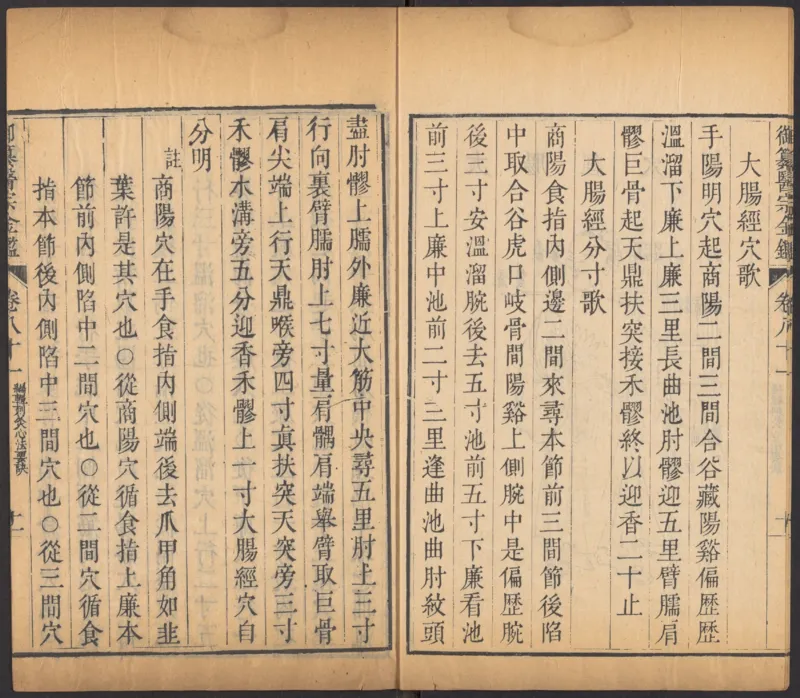 大腸經穴歌
手陽明穴起商陽二間三間合谷藏陽谿偏歷歷
溫溜下廉上廉三里長曲池肘髎迎五里臂臑肩
髎巨骨起天鼎扶突接禾髎終以迎香二十止
大腸經分寸歌
商陽食指內側邊二間來尋本節前三間節後陷
中取合谷虎口岐骨間陽谿上側腕中是偏歷腕
後三寸安溫溜腕後去五寸池前五寸下廉看池
前三寸上廉中池前二寸三里逢曲池曲肘紋頭
盡肘髎上臑外廉近大筋中央尋五里肘上三寸
行向裏臂臑肘上七寸量肩髃肩端舉臂取巨骨
肩尖端上行天鼎喉旁四寸眞扶突天突旁三寸
禾髎水溝旁五分迎香禾髎上一寸大腸經穴自
分明
註
商陽穴在手食指內側端後去爪甲角如韭
葉許是其穴也○從商陽穴循食指上廉本
節前內側陷中二間穴也○從二間穴循食
指本節後內側陷中三間穴也○從三間穴
御纂醫宗金鑑
卷八十一
編輯刺灸心法要訣
十一